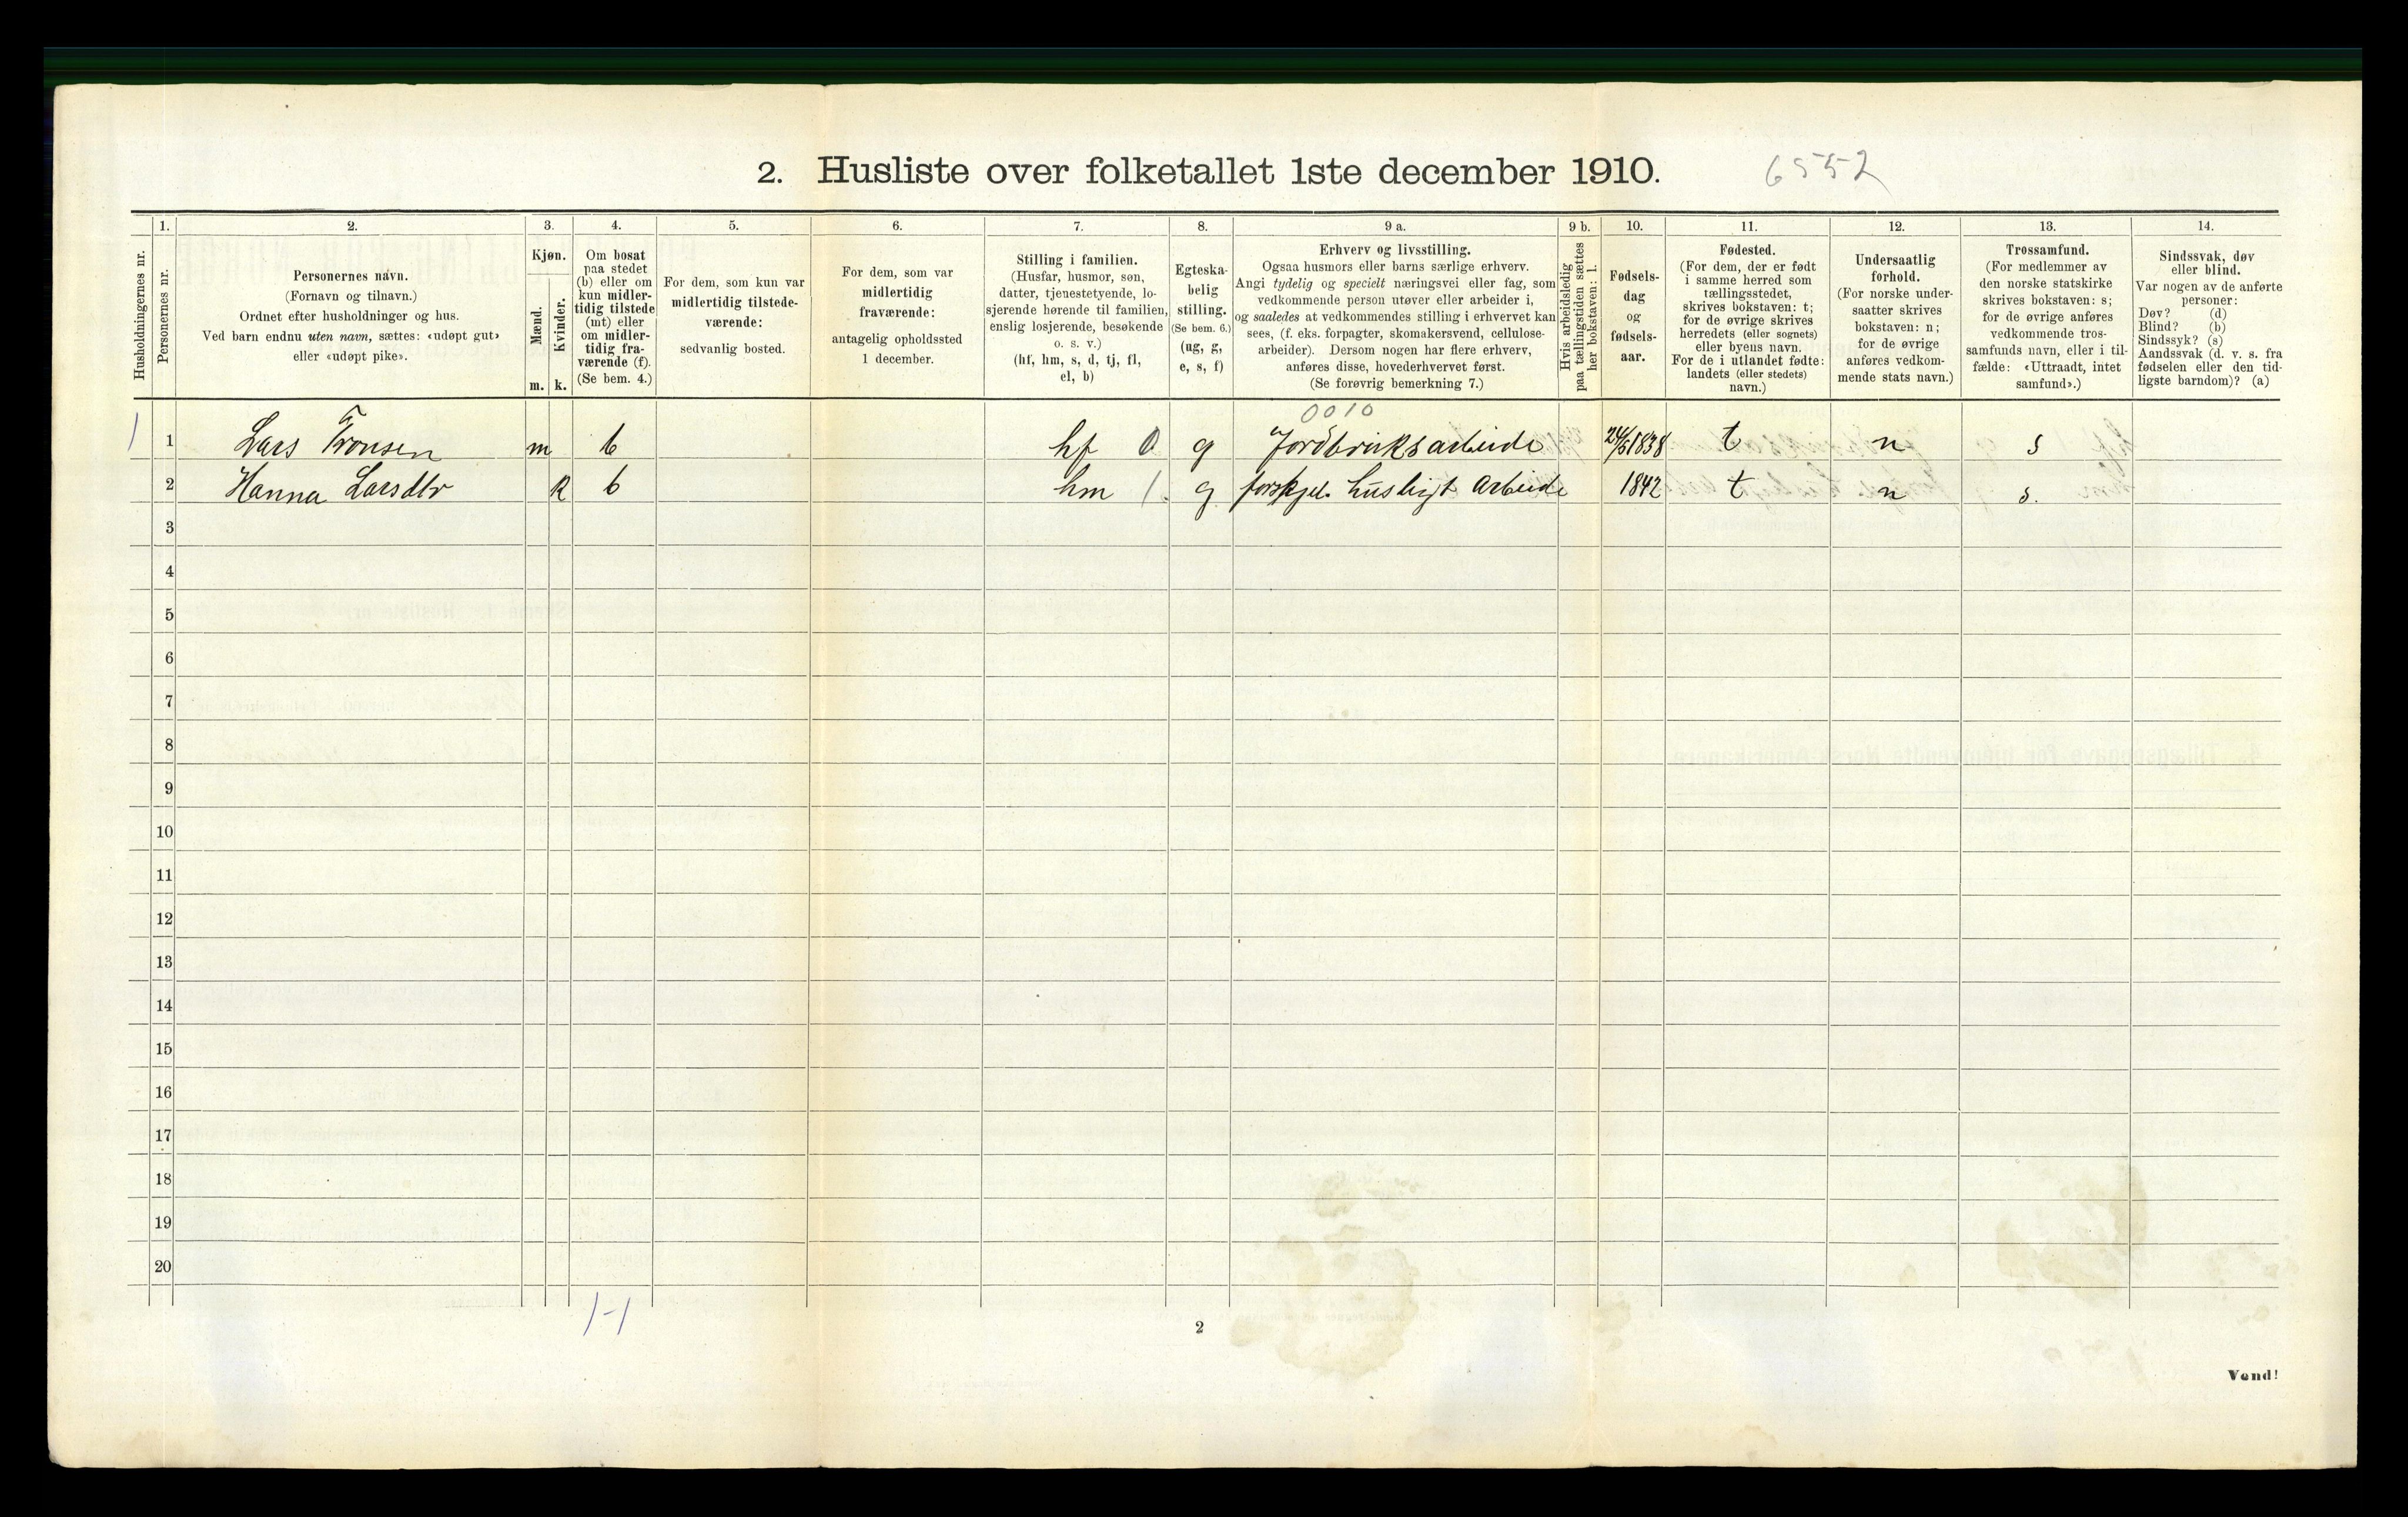 2. Husliste over folketallet 1ste december 1910. 6552
Husholdningernes nr.
1.
Personernes nr.
2.
Personernes navn.
(Fornavn og tilnavn.)
Ordnet efter husholdninger og hus.
Ved barn endnu uten navn, sættes: «udøpt gut»
eller «udøpt pike».
3.
Kjøn.
Mænd.
m.
Kvinder.
k.
4.
Om bosat
paa stedet
(b) eller om
kun midler-
tidig tilstede
(mt) eller
om midler-
tidig fra-
værende (f).
(Se bem. 4.)
5.
For dem, som kun var
midlertidig tilstede-
værende:
sedvanlig bosted.
6.
For dem, som var
midlertidig
fraværende:
antagelig opholdssted
1 december.
7.
Stilling i familien.
(Husfar, husmor, søn,
datter, tjenestetyende, lo-
sjerende hørende til familien,
enslig losjerende, besøkende
o. s. v.)
(hf, hm, s, d, tj, fl,
el, b)
8.
Egteska-
belig
stilling.
(Se bem. 6.)
(ug, g,
e, s, f)
9 a.
Erhverv og livsstilling.
Ogsaa husmors eller barns særlige erhverv.
Angi tydelig og specielt næringsvei eller fag, som
vedkommende person utøver eller arbeider i,
og saaledes at vedkommendes stilling i erhvervet kan
sees, (f. eks. forpagter, skomakersvend, cellulose-
arbeider). Dersom nogen har flere erhverv,
anføres disse, hovederhvervet først.
(Se forøvrig bemerkning 7.)
9 b.
Hvis arbeidsledig
paa tællingstiden sættes
her bokstaven: l.
10.
Fødsels-
dag
og
fødsels-
aar.
11.
Fødested.
(For dem, der er født
i samme herred som
tællingsstedet,
skrives bokstaven: t;
for de øvrige skrives
herredets (eller sognets)
eller byens navn.
For de i utlandet fødte:
landets (eller stedets)
navn.)
12.
Undersaatlig
forhold.
(For norske under-
saatter skrives
bokstaven: n;
for de øvrige
anføres vedkom-
mende stats navn.)
13.
Trossamfund.
(For medlemmer av
den norske statskirke
skrives bokstaven: s;
for de øvrige anføres
vedkommende tros-
samfunds navn, eller i til-
fælde: «Uttraadt, intet
samfund».)
14.
Sindssvak, døv
eller blind.
Var nogen av de anførte
personer:
Døv? (d)
Blind? (b)
Sindssyk? (s)
Aandssvak (d. v. s. fra
fødselen eller den tid-
ligste barndom)? (a)
0010
1 1 Lars Tronsen m b hf 0 g Jordbruksarbeide 24/5 1838 t n s
2 Hanna Larsdtr k b hm 1. g forskjel. husligt arbeide 1842 t n s.
3
4
5
6
7
8
9
10
11
12
13
14
15
16
17
18
19
20
1-1
2
Vend!